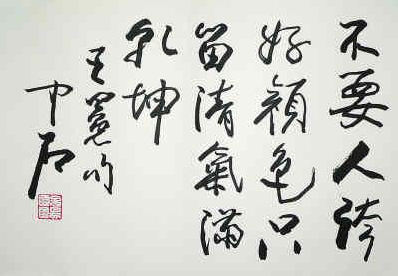 不要人誇
好顏色只
留清氣滿
乾坤
王冕句
中石